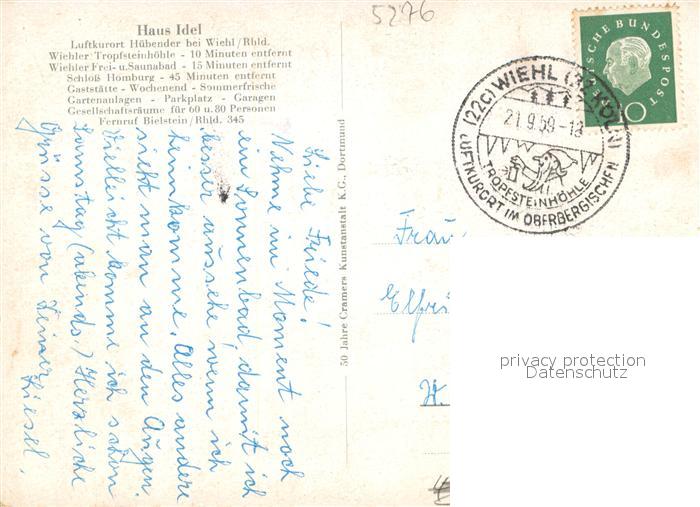 5276
Haus Idel
Luftkurort Hübender bei Wiehl/Rhld.
Wiehler Tropfsteinhöhle - 10 Minuten entfernt
Wiehler Frei- u. Saunabad - 15 Minuten entfernt
Schloß Homburg - 45 Minuten entfernt
Gaststätte - Wochenend - Sommerfrische
Gartenanlagen - Parkplatz - Garagen
Gesellschaftsräume für 60 u. 80 Personen
Fernruf Bielstein/Rhld. 345
Liebe Friede!
Nehme im Moment noch
ein Sonnenbad, damit ich
besser aussehe wenn ich
heimkomme. Alles andere
sieht man an den Augen.
Vielleicht komme ich schon
Samstag (abends.) Herzliche
Grüsse von Deiner
Liesel.
50 Jahre Cramers Kunstanstalt K.G., Dortmund
SCHE BUNDESPOST
(22c) WIEHL
21.9.59-18
TROPFSTEINHÖHLE
LUFTKURORT IM OBERBERGISCHEN
Frau
Elfri
privacy protection
Datenschutz